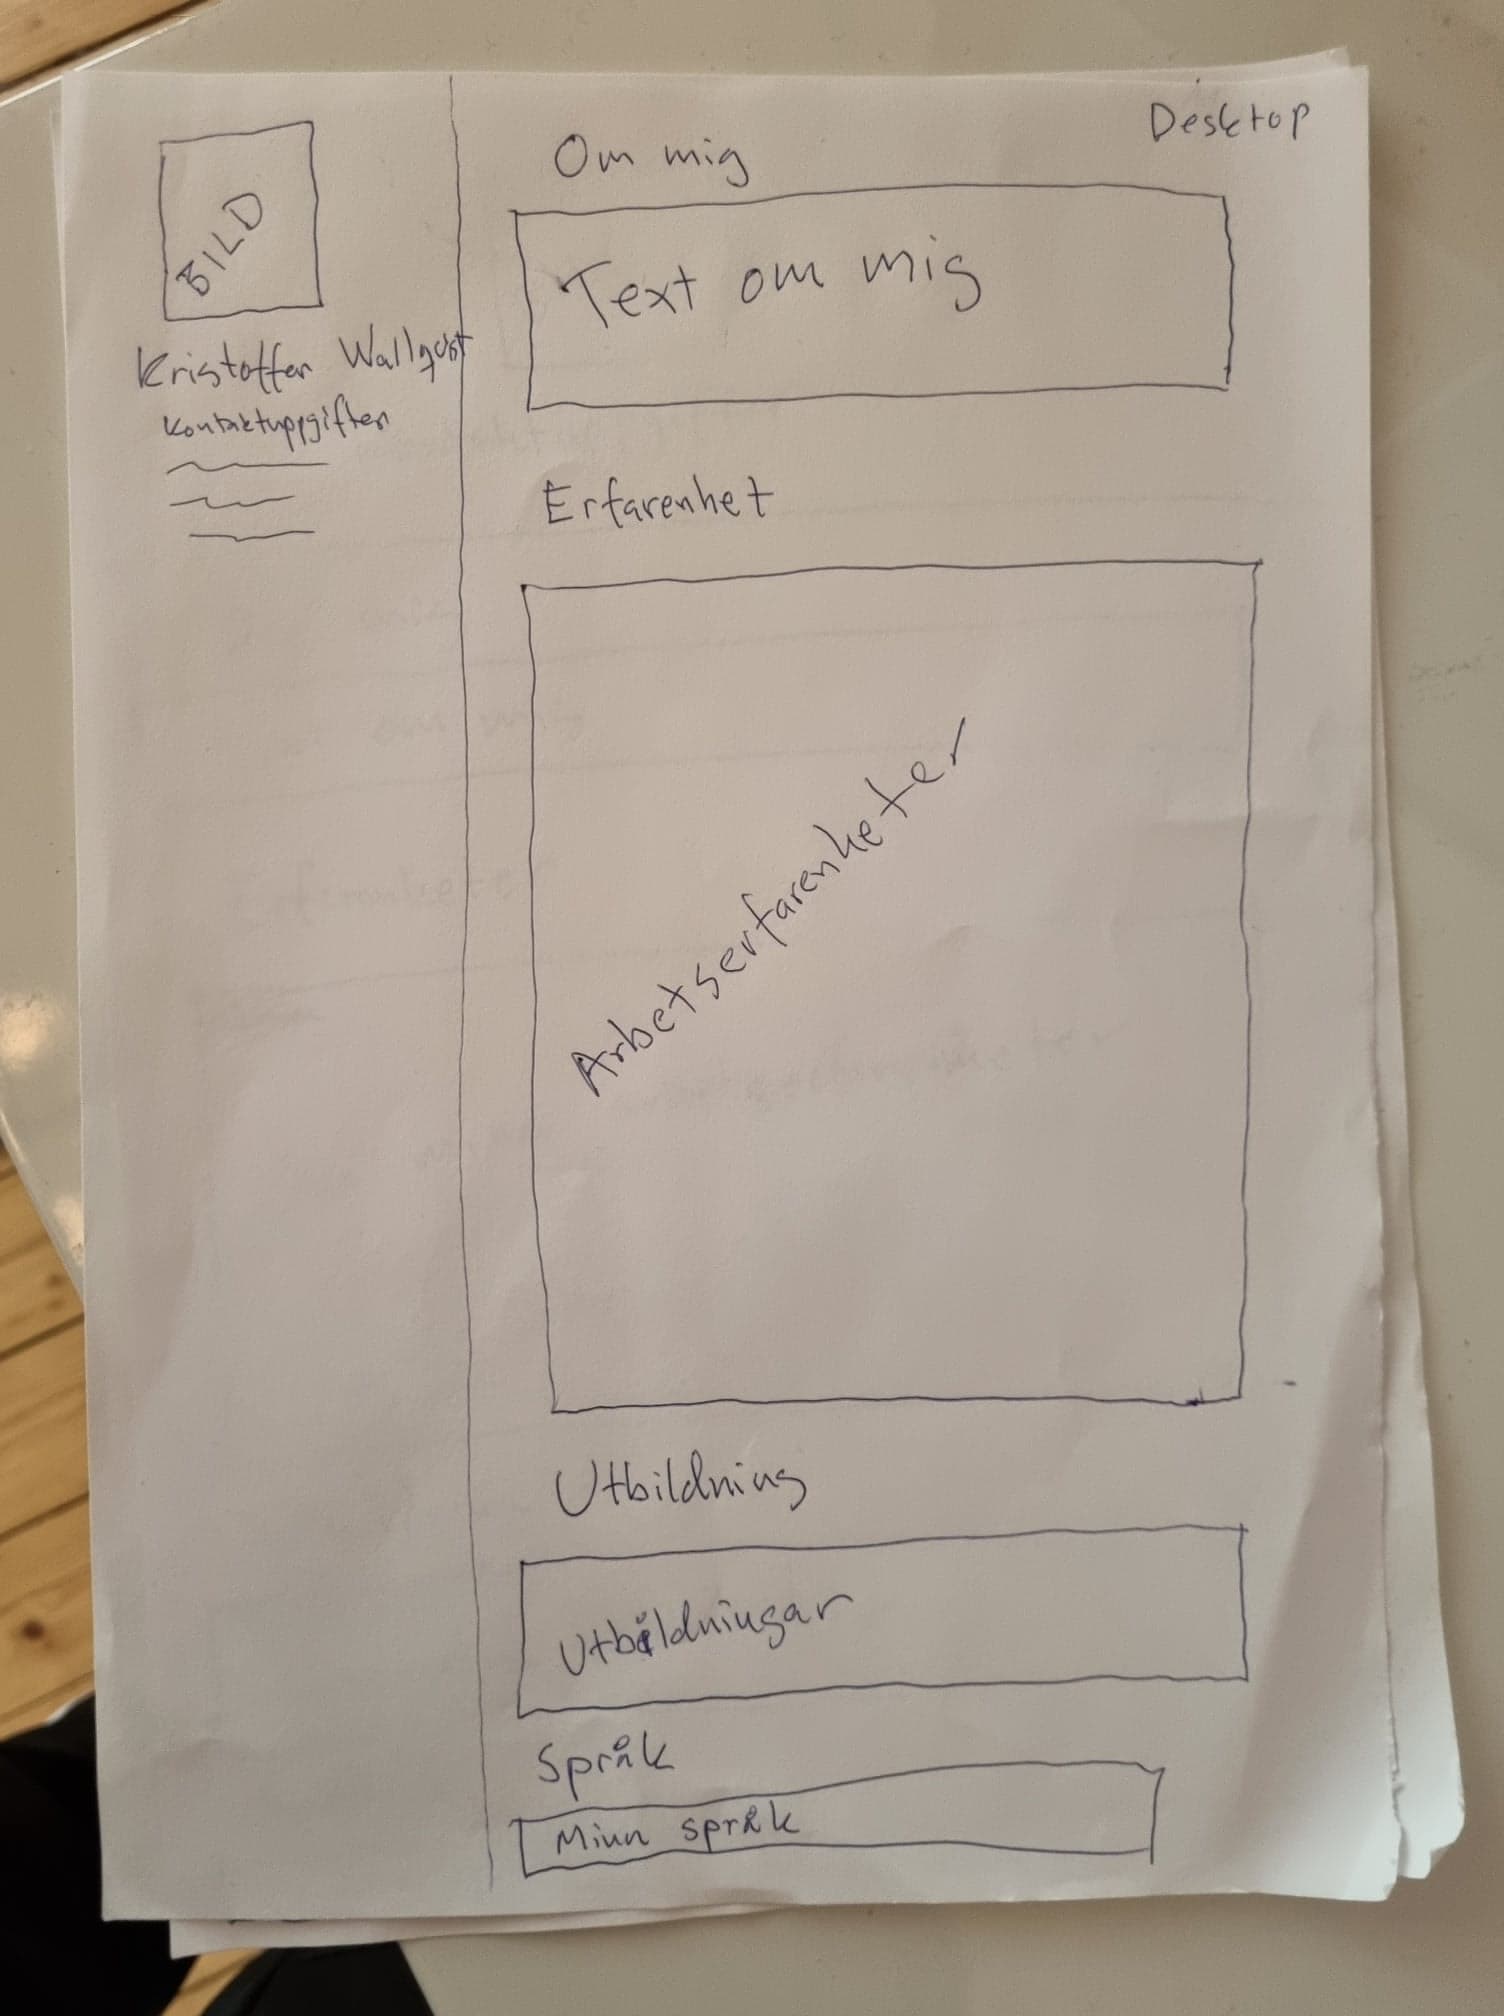 Desktop
BILD
Kristoffer Wallqvist
Kontaktuppgifter
Om mig
Text om mig
Erfarenhet
Arbetserfarenheter
Utbildning
Utbildningar
Språk
Minn språk